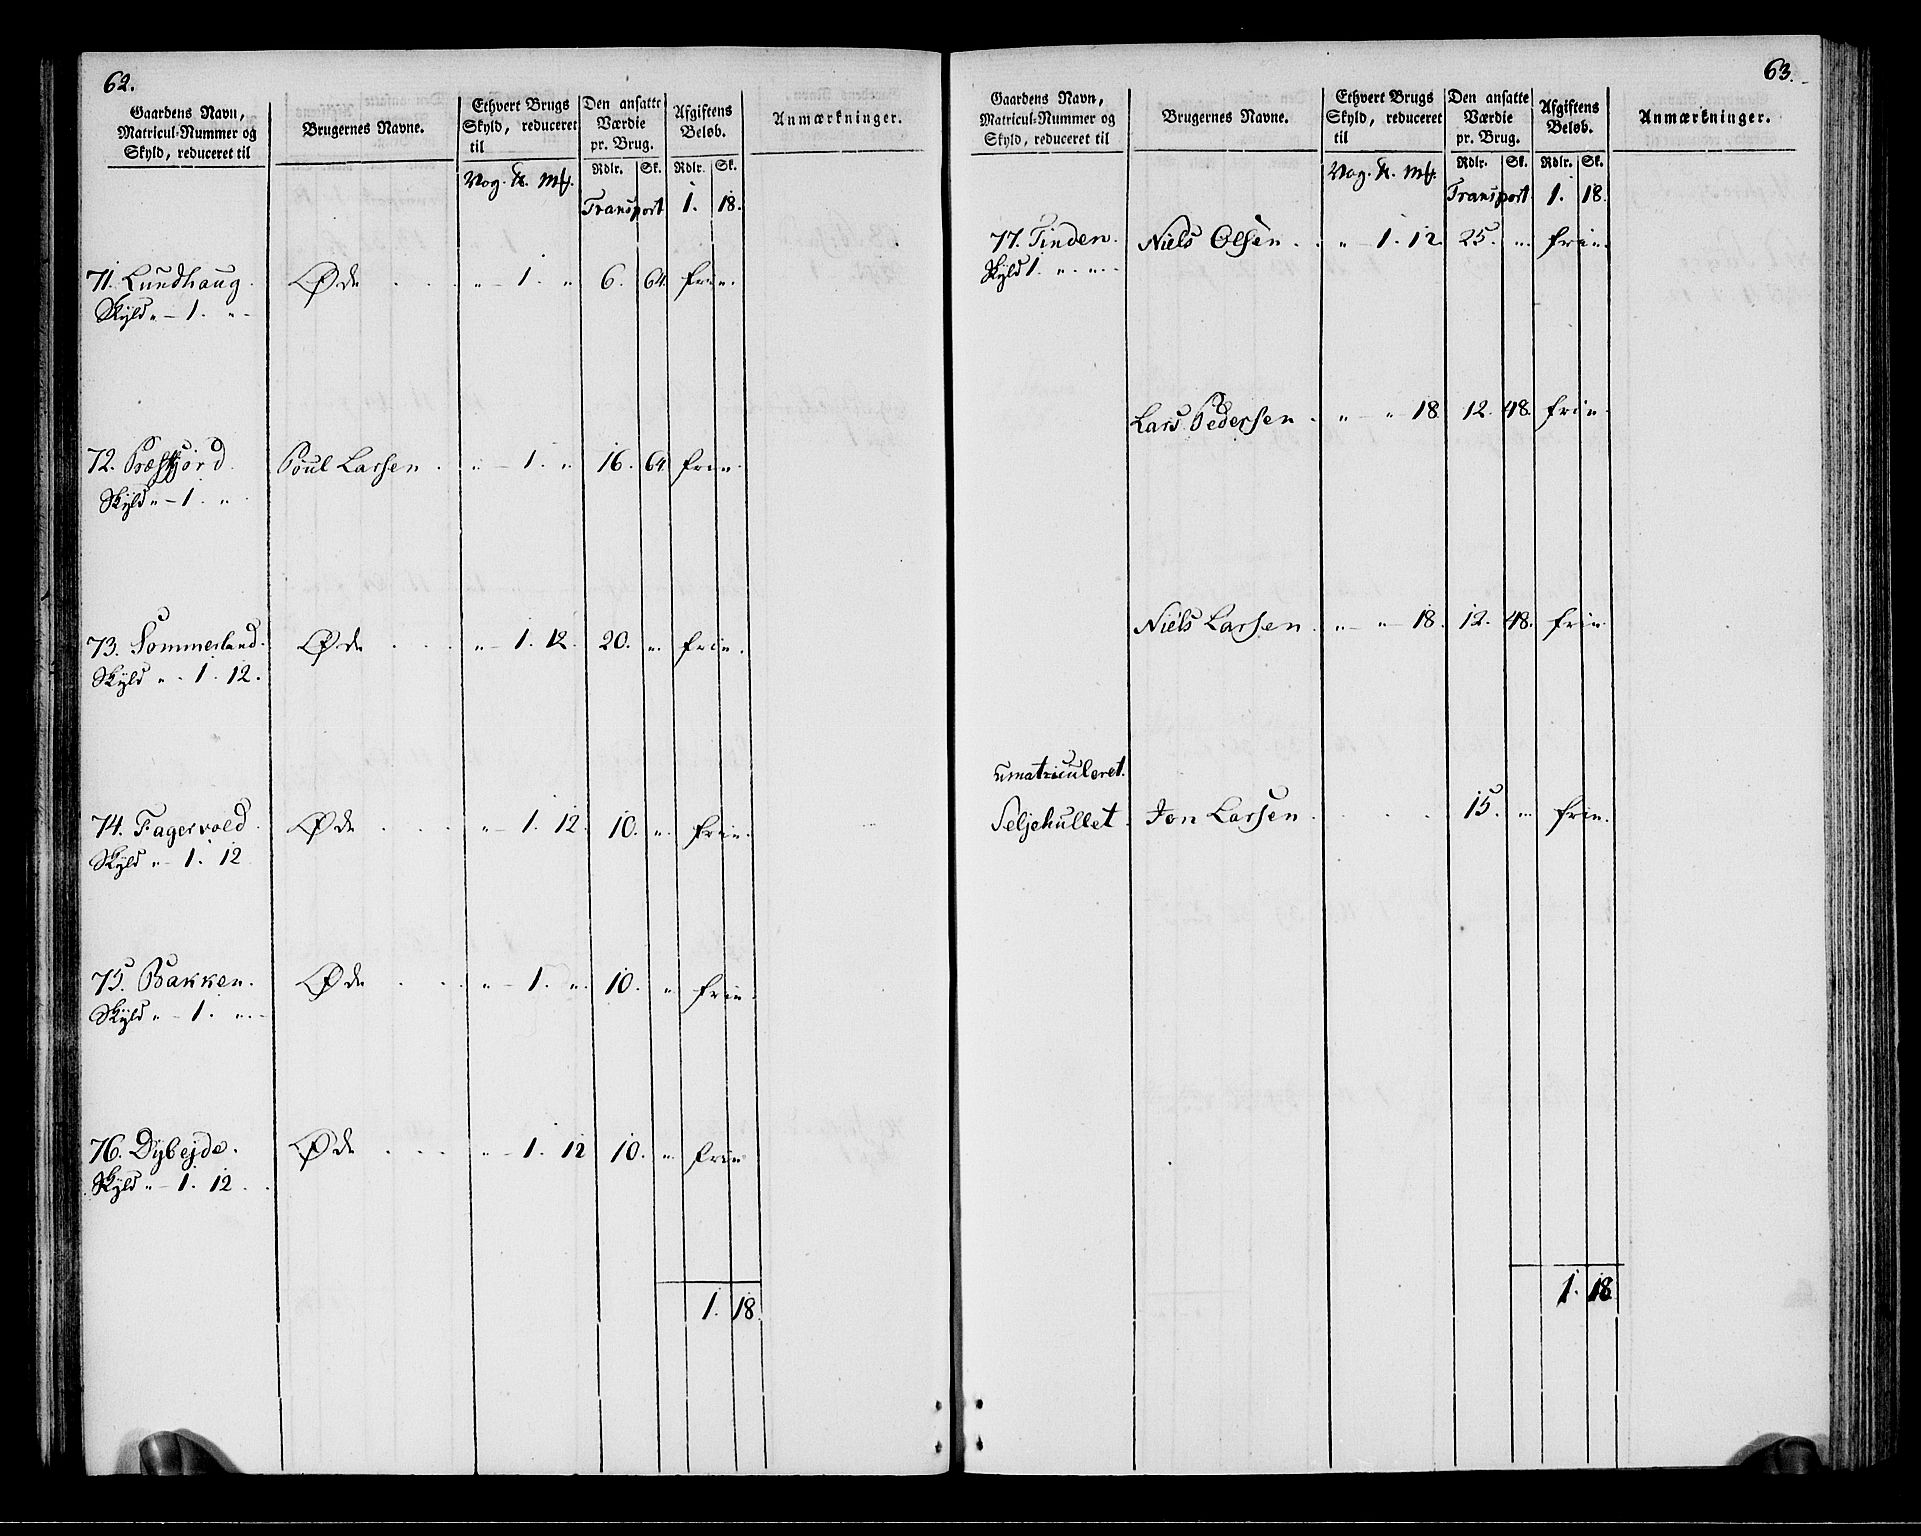 62.
Gaardens Navn, Matricul-Nummer og Skyld, reduceret til | Brugernes Navne. | Ethvert Brugs Skyld, reduceret til | Den ansatte Værdie pr. Brug. | Afgiftens Beløb. | Anmærkninger.
Vog. ℔. Mk. | Rdlr. | Sk. | Rdlr. | Sk.
Transport 1. 18.
71. Lundhaug. Øde . . . „ – 1. „ 6. 64. frie.
Skyld „ – 1. „ -
72. Præstfjord. Poul Larsen . „ – 1. „ 16. 64. frie.
Skyld „ – 1. „
73. Sommerland. Øde . . . „ – 1. 12. 20. „ frie.
Skyld „ - 1. 12.
74. Fagervold. Øde . . . „ – 1. 12. 10. „ frie.
Skyld „ – 1. 12
75. Bakken. Øde . . . „ – 1. „ 10. „ frie.
Skyld „ – 1. „ -
76. Dybejde. Øde . . . „ – 1. 12 10. „ frie
Skyld „ – 1. 12 .
1. 18.
63.
Gaardens Navn, Matricul-Nummer og Skyld, reduceret til | Brugernes Navne. | Ethvert Brugs Skyld, reduceret til | Den ansatte Værdie pr. Brug. | Afgiftens Beløb. | Anmærkninger.
Vog. ℔. Mk. | Rdlr. | Sk. | Rdlr. | Sk.
Transport 1. 18
77. Tinden. Niels Olsen . „ – 1. 12. 25. „ frie.
Skyld 1. „ „
Lars Pedersen . „ – „ – 18 12. 48. frie.
Niels Larsen . „ – „ – 18. 12. 48. frie.
umatriculeret.
Seljehullet. Jon Larsen . . . . 15. „ frie.
1. 18